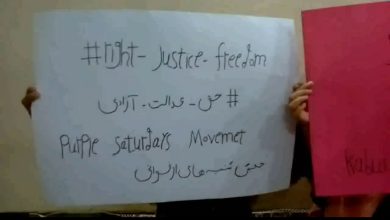 #right - Justice - freedom
# حق - عدالت - آزادی
Purple Saturdays Movemet
جنبش شنبه های ارغوانی
Kabul